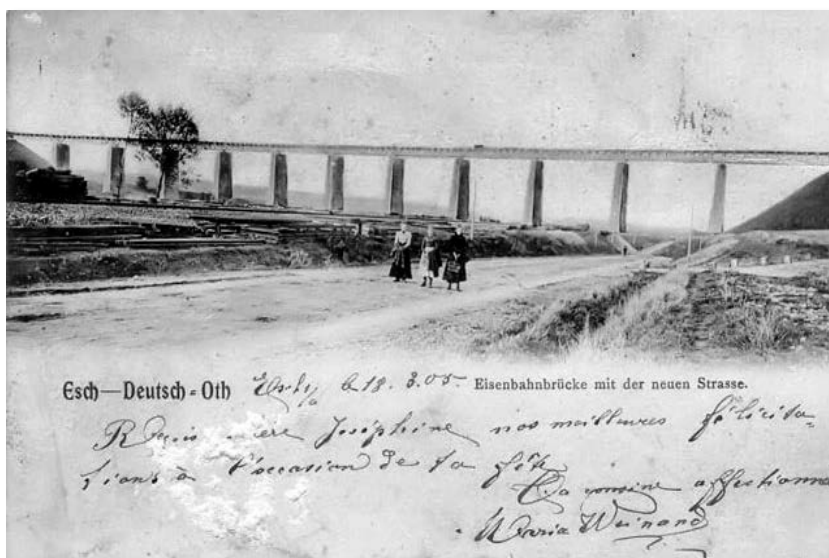 Esch—Deutsch=Oth Esch s/a 18. 3. 05. Eisenbahnbrücke mit der neuen Strasse.
Reçois chère Joséphine nos meilleures félicita-
tions à l'occasion de ta fête
Ta cousine affectionnée
Maria Weinand